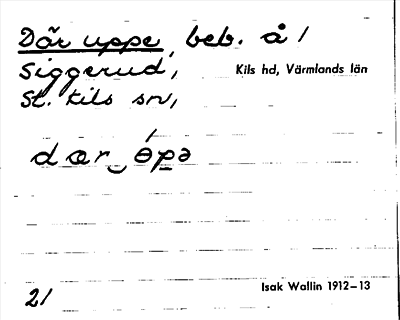 Där uppe, beb. å /
Siggerud,
Kils hd, Värmlands län
St. Kils sn,
dær‿ɵ́pə
21
Isak Wallin 1912–13